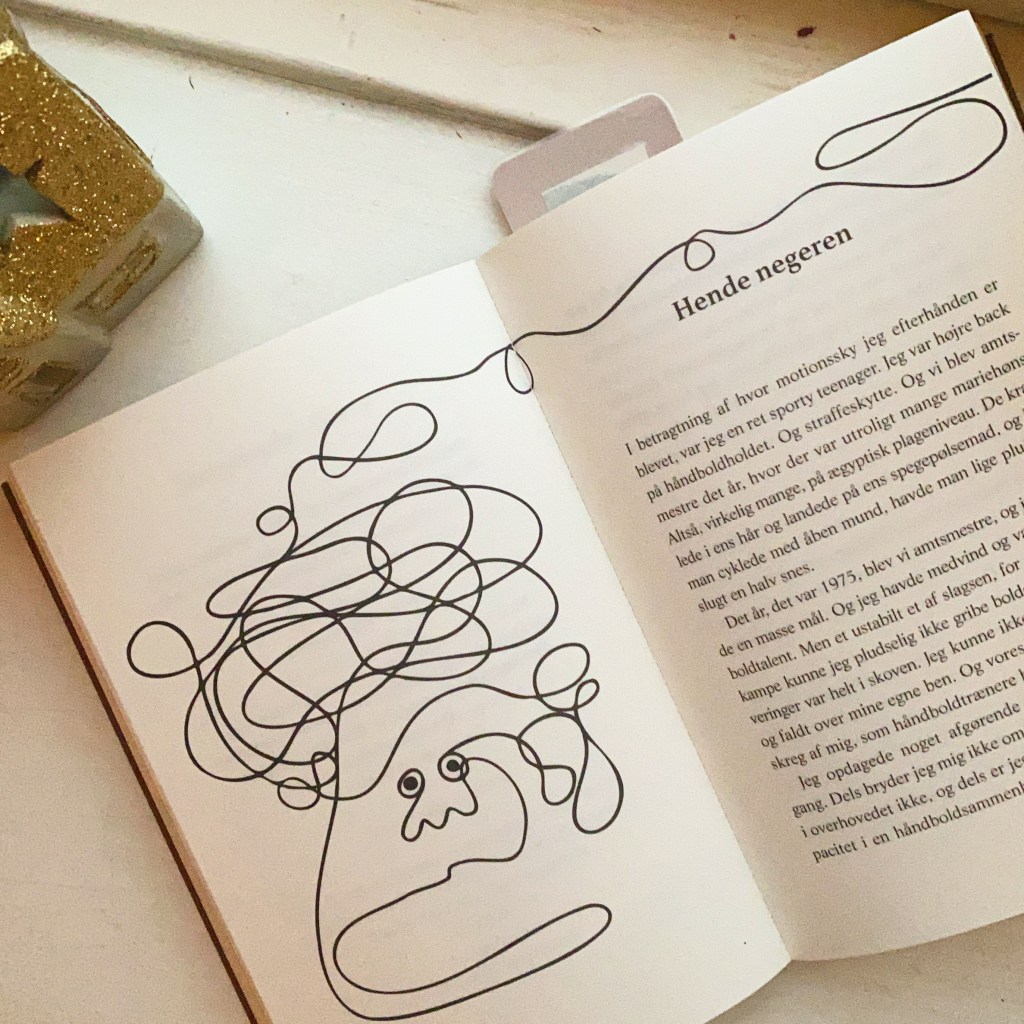 Hende negeren
I betragtning af hvor motionssky jeg efterhånden er
blevet, var jeg en ret sporty teenager. Jeg var højre back
på håndboldholdet. Og straffeskytte. Og vi blev amts-
mestre det år, hvor der var utroligt mange mariehøns
Altså, virkelig mange, på ægyptisk plageniveau. De
lede i ens hår og landede på ens spegepølsemad, og
man cyklede med åben mund, havde man lige
slugt en halv snes.
Det år, det var 1975, blev vi amtsmestre, og
de en masse mål. Og jeg havde medvind og
boldtalent. Men et ustabilt et af slagsen, for
kampe kunne jeg pludselig ikke gribe
veringer var helt i skoven. Jeg kunne ikke
og faldt over mine egne ben. Og vores
skreg af mig, som håndboldtrænere
Jeg opdagede noget afgørende
gang. Dels bryder jeg mig ikke om
i overhovedet ikke, og dels er
pacitet i en